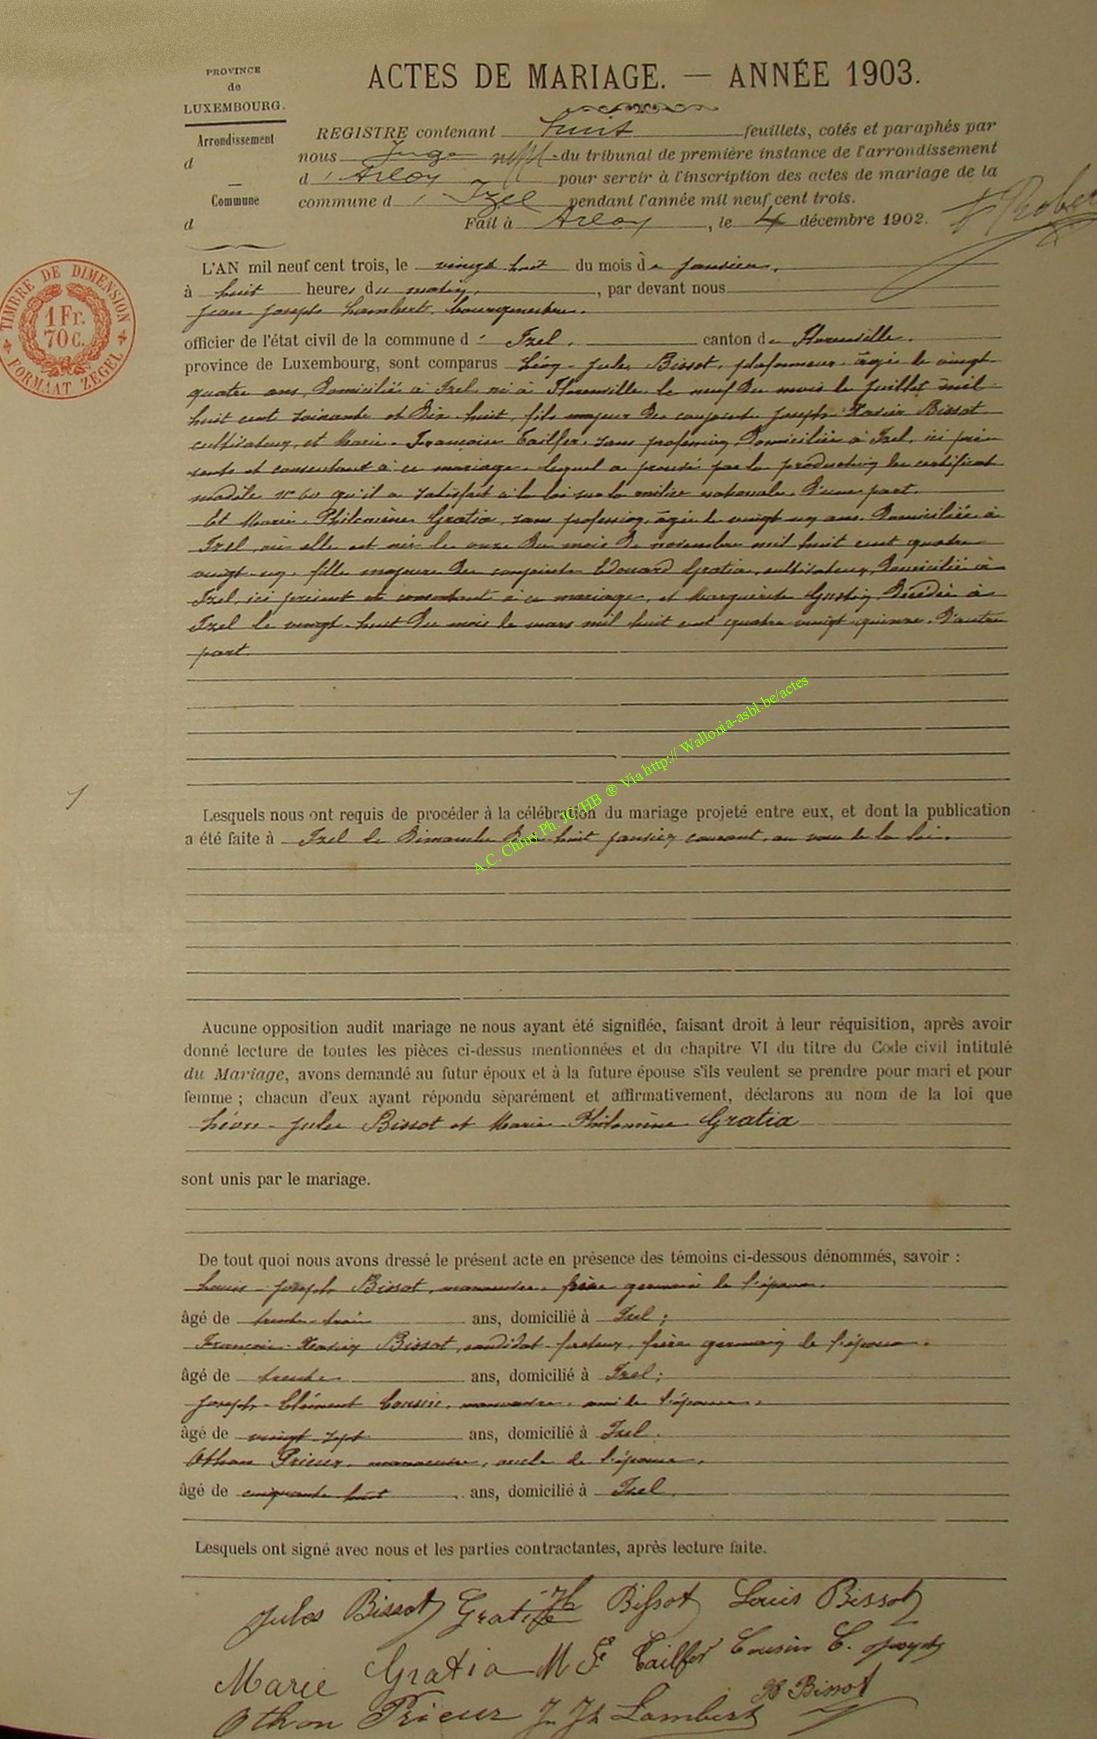 PROVINCE
de
LUXEMBOURG.
Arrondissement
d
Commune
d
ACTES DE MARIAGE. — ANNÉE 1903.
REGISTRE contenant huit feuillets, cotés et paraphés par
nous Juge du tribunal de première instance de l'arrondissement
d'Arlon pour servir à l'inscription des actes de mariage de la
commune d'Izel pendant l'année mil neuf cent trois.
Fait à Arlon, le 4 décembre 1902.
TIMBRE DE DIMENSION
1 Fr.
70 C.
FORMAAT ZEGEL
L'AN mil neuf cent trois, le vingt huit du mois de janvier,
à huit heures du matin, par devant nous
Jean-Joseph Lambert, bourgmestre,
officier de l'état civil de la commune d'Izel, canton de Florenville,
province de Luxembourg, sont comparus Léon-Jules Bissot, plafonneur, âgé de vingt
quatre ans, domicilié à Izel, né à Florenville, le neuf du mois de juillet mil
huit cent soixante et dix-huit, fils majeur des conjoints Joseph-Xavier Bissot
cultivateur, et Marie-Françoise Tailfer, sans profession, domiciliés à Izel, ici pré-
sents et consentant à ce mariage, lequel a prouvé par la production du certificat
modèle n° 60 qu'il a satisfait à la loi sur la milice nationale, d'une part.
Et Marie-Philomène Gratia, sans profession, âgée de vingt un ans, domiciliée à
Izel, où elle est née le onze du mois de novembre mil huit cent quatre
vingt-un, fille majeure des conjoints Edouard Gratia, cultivateur, domicilié à
Izel, ici présent et consentant à ce mariage, et Marguerite Gustin, décédée à
Izel le vingt-huit du mois de mars mil huit cent quatre vingt-quinze, d'autre
part.
A.C. Chiny Ph. JC/HB ® Via http:// Wallonia-asbl.be/actes
1
Lesquels nous ont requis de procéder à la célébration du mariage projeté entre eux, et dont la publication
a été faite à Izel le Dimanche dix-huit janvier courant, au vœu de la loi.
Aucune opposition audit mariage ne nous ayant été signifiée, faisant droit à leur réquisition, après avoir
donné lecture de toutes les pièces ci-dessus mentionnées et du chapitre VI du titre du Code civil intitulé
du Mariage, avons demandé au futur époux et à la future épouse s'ils veulent se prendre pour mari et pour
femme ; chacun d'eux ayant répondu séparément et affirmativement, déclarons au nom de la loi que
Léon-Jules Bissot et Marie-Philomène Gratia
sont unis par le mariage.
De tout quoi nous avons dressé le présent acte en présence des témoins ci-dessous dénommés, savoir :
Louis-Joseph Bissot, manœuvre, frère germain de l'époux,
âgé de trente-trois ans, domicilié à Izel ;
François-Xavier Bissot, candidat-facteur, frère germain de l'époux,
âgé de trente ans, domicilié à Izel ;
Joseph-Clément Cousin, manœuvre, ami de l'époux,
âgé de vingt-sept ans, domicilié à Izel.
Othon Prieur, manœuvre, oncle de l'épouse,
âgé de cinquante huit ans, domicilié à Izel.
Lesquels ont signé avec nous et les parties contractantes, après lecture faite.
Jules Bissot Gratia Bissot Louis Bissot
Marie Gratia M F Tailfer Cousin C. Joseph
Bissot
Othon Prieur Jn Jh Lambert